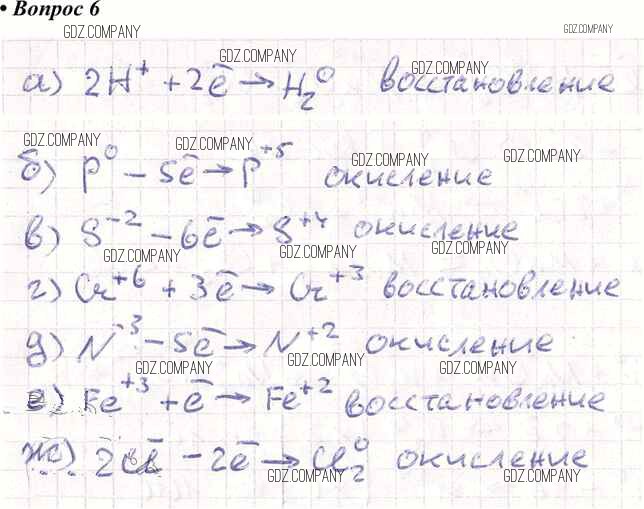 • Вопрос 6
GDZ.COMPANY GDZ.COMPANY
GDZ.COMPANY GDZ.COMPANY
а) 2H⁺ + 2ē → H₂⁰ восстановление
GDZ.COMPANY GDZ.COMPANY GDZ.COMPANY GDZ.COMPANY
б) P⁰ - 5ē → P⁺⁵ окисление
в) S⁻² - 6ē → S⁺⁴ окисление
GDZ.COMPANY GDZ.COMPANY GDZ.COMPANY
г) Cr⁺⁶ + 3ē → Cr⁺³ восстановление
д) N⁻³ - 5ē → N⁺² окисление
GDZ.COMPANY GDZ.COMPANY GDZ.COMPANY
е) Fe⁺³ + ē → Fe⁺² восстановление
GDZ.COMPANY GDZ.COMPANY GDZ.COMPANY
ж) 2Cl⁻ - 2ē → Cl₂⁰ окисление
GDZ.COMPANY GDZ.COMPANY